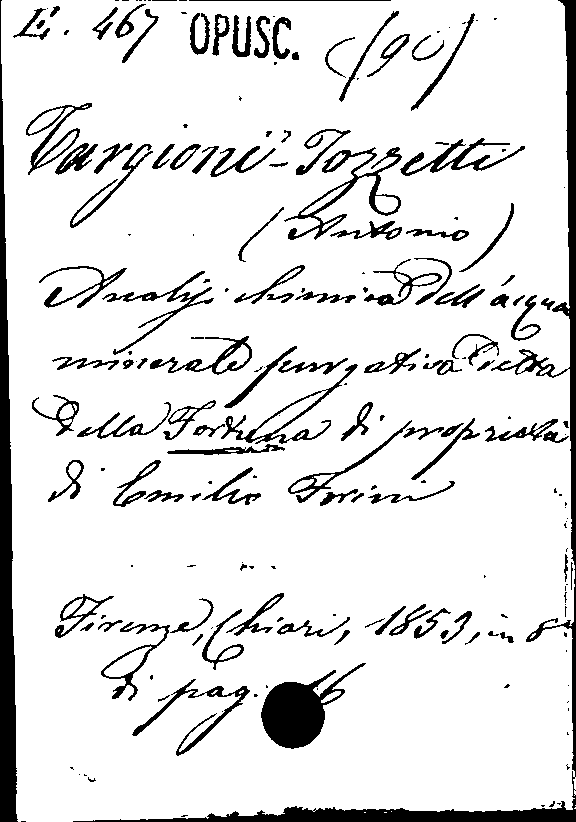 E. 467 OPUSC. (90)
Targioni-Tozzetti
(Antonio)
Analisi chimica dell'acqua
minerale purgativa detta
della Fortuna di proprietà
di Emilio Forini
Firenze, Chiari, 1853, in 8°
di pag. 16